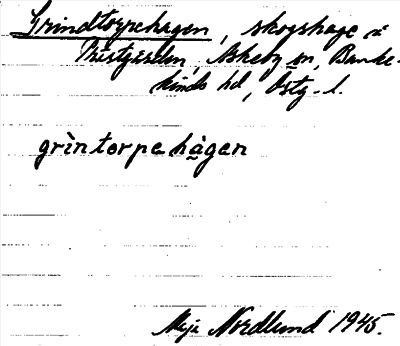 Grindtorpehagen, skogshage i
Västgården, Askeby sn, Banke-
kinds hd, Östg. l.
grìntorpehàgen
Maja Nordlund 1945.